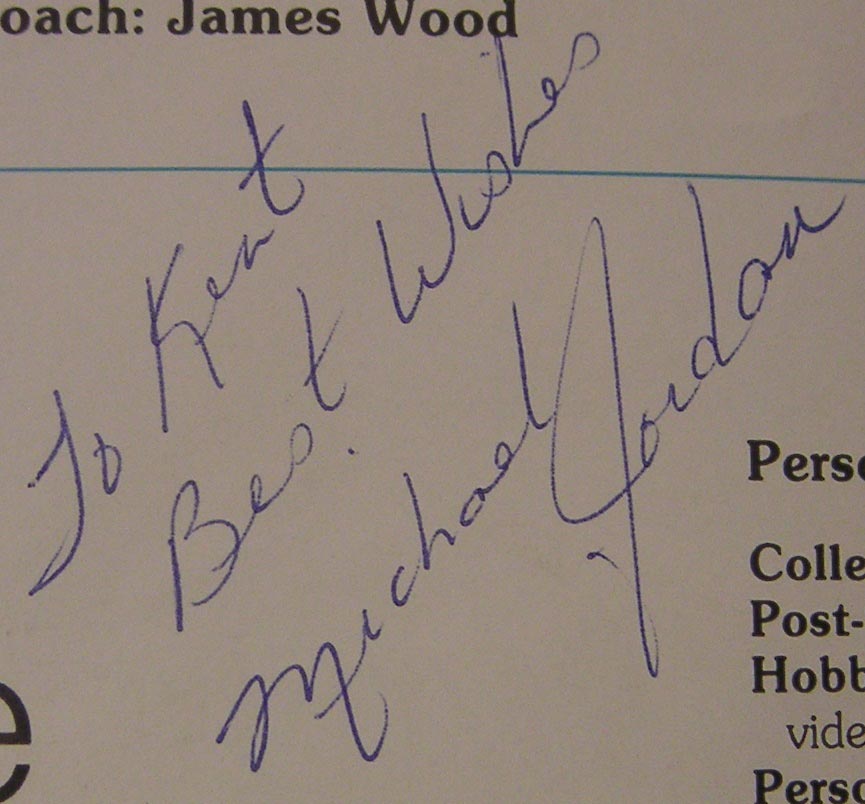 oach: James Wood
To Kent
Best Wishes
Michael Jordan
Perso
Colle
Post-
Hobb
vide
Perso
e